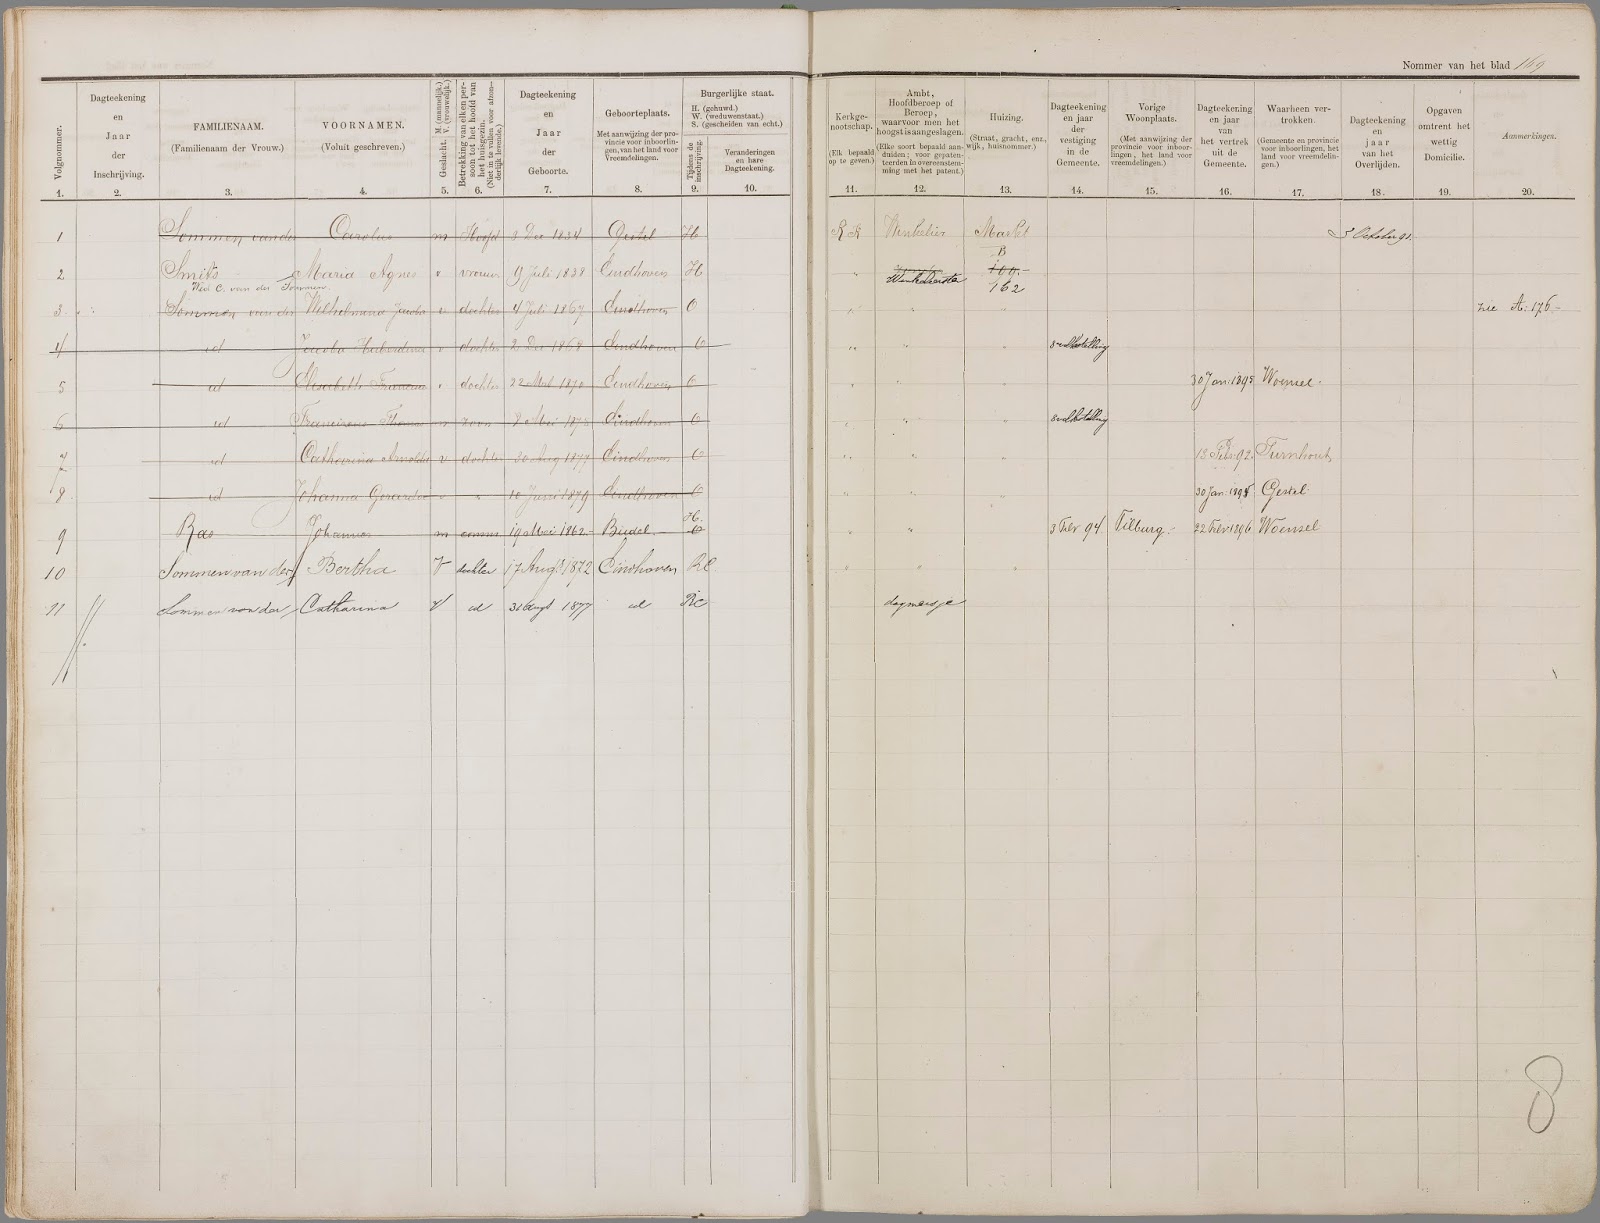 Nommer van het blad 169
Volgnommer.
1.
Dagteekening
en
Jaar
der
Inschrijving.
2.
FAMILIENAAM.
(Familienaam der Vrouw.)
3.
VOORNAMEN.
(Voluit geschreven.)
4.
Geslacht. M. (mannelijk.) V. (vrouwelijk.)
5.
Betrekking van elken per-
soon tot het hoofd van
het huisgezin.
(Niet in te vullen voor afzon-
derlijk levende.)
6.
Dagteekening
en
Jaar
der
Geboorte.
7.
Geboorteplaats.
Met aanwijzing der pro-
vincie voor inboorlin-
gen, van het land voor
Vreemdelingen.
8.
Burgerlijke staat.
H. (gehuwd.)
W. (weduwenstaat.)
S. (gescheiden van echt.)
Tijdens de
inschrijving.
9.
Veranderingen
en hare
Dagteekening.
10.
Kerkge-
nootschap.
(Elk bepaald
op te geven.)
11.
Ambt,
Hoofdberoep of
Beroep,
waarvoor men het
hoogst is aangeslagen.
(Elke soort bepaald aan-
duiden; voor gepaten-
teerden in overeenstem-
ming met het patent.)
12.
Huizing.
(Straat, gracht, enz.,
wijk, huisnommer.)
13.
Dagteekening
en jaar
der
vestiging
in de
Gemeente.
14.
Vorige
Woonplaats.
(Met aanwijzing der
provincie voor inboor-
lingen, het land voor
vreemdelingen.)
15.
Dagteekening
en jaar
van
het vertrek
uit de
Gemeente.
16.
Waarheen ver-
trokken.
(Gemeente en provincie
voor inboorlingen, het
land voor vreemdelin-
gen.)
17.
Dagteekening
en
jaar
van het
Overlijden.
18.
Opgaven
omtrent het
wettig
Domicilie.
19.
Aanmerkingen.
20.
1 Sommen van der Carolus m Hoofd 9 Dec 1834 Gestel H R K Winkelier Markt 3 October 91.
B
2 Smits Maria Agnes v vrouw 9 Juli 1838 Eindhoven H " Winkelierster 100.-
Wed C. van der Sommen. 162
3 Sommen van der Wilhelmina Jacoba v dochter 4 Juli 1867 Eindhoven O " " " zie A. 176.-
4 id Jacoba Huberdina v dochter 2 Dec 1868 Eindhoven O " " "
5 id Elisabeth v dochter 22 1870 Eindhoven O " " " 30 Jan. 1895 Woensel.
6 id Franciscus Thomas m zoon 8 Mei Eindhoven O " " "
7 id Catharina Arnolda v dochter 30 Aug 1877 Eindhoven O " " " 13 Febr. 92. Turnhout
8 id Johanna Gerarda v " 10 Juni 1879 Eindhoven O " " " 30 Jan. 1895 Gestel
H.
9 Ras Johannes m 19 Mei 1862.- Budel O " " 3 Febr 94 Tilburg.- 22 Febr 1896 Woensel
10 Sommen van der Bertha V dochter 17 Aug. 1872 Eindhoven RC " " "
11 Sommen van der Catharina V id 31 Augt 1877 id RC dagmeisje
8